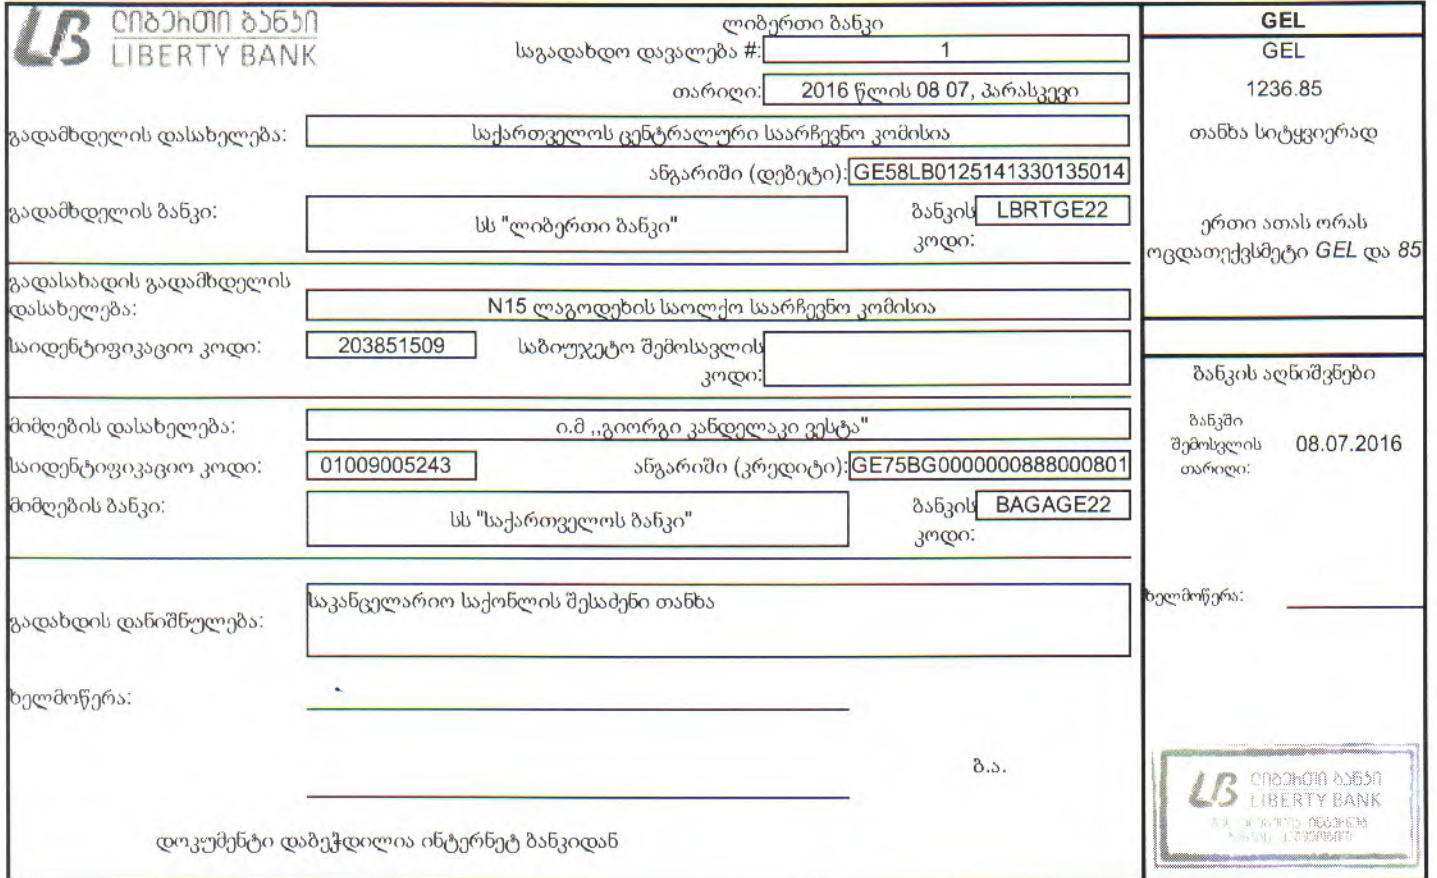 ლიბერთი ბანკი
LIBERTY BANK
ლიბერთი ბანკი
საგადახდო დავალება #: 1
თარიღი: 2016 წლის 08 07, პარასკევი
გადამხდელის დასახელება: საქართველოს ცენტრალური საარჩევნო კომისია
ანგარიში (დებეტი): GE58LB0125141330135014
გადამხდელის ბანკი: სს "ლიბერთი ბანკი" ბანკის კოდი: LBRTGE22
გადასახადის გადამხდელის
დასახელება: N15 ლაგოდეხის საოლქო საარჩევნო კომისია
საიდენტიფიკაციო კოდი: 203851509 საბიუჯეტო შემოსავლის
კოდი:
მიმღების დასახელება: ი.მ ,,გიორგი კანდელაკი ვესტა"
საიდენტიფიკაციო კოდი: 01009005243 ანგარიში (კრედიტი): GE75BG0000000888000801
მიმღების ბანკი: სს "საქართველოს ბანკი" ბანკის კოდი: BAGAGE22
საკანცელარიო საქონლის შესაძენი თანხა
გადახდის დანიშნულება:
ხელმოწერა:
ბ.ა.
დოკუმენტი დაბეჭდილია ინტერნეტ ბანკიდან
GEL
GEL
1236.85
თანხა სიტყვიერად
ერთი ათას ორას
ოცდათექვსმეტი GEL და 85
ბანკის აღნიშვნები
ბანკში
შემოსვლის 08.07.2016
თარიღი:
ხელმოწერა:
ლიბერთი ბანკი
LIBERTY BANK